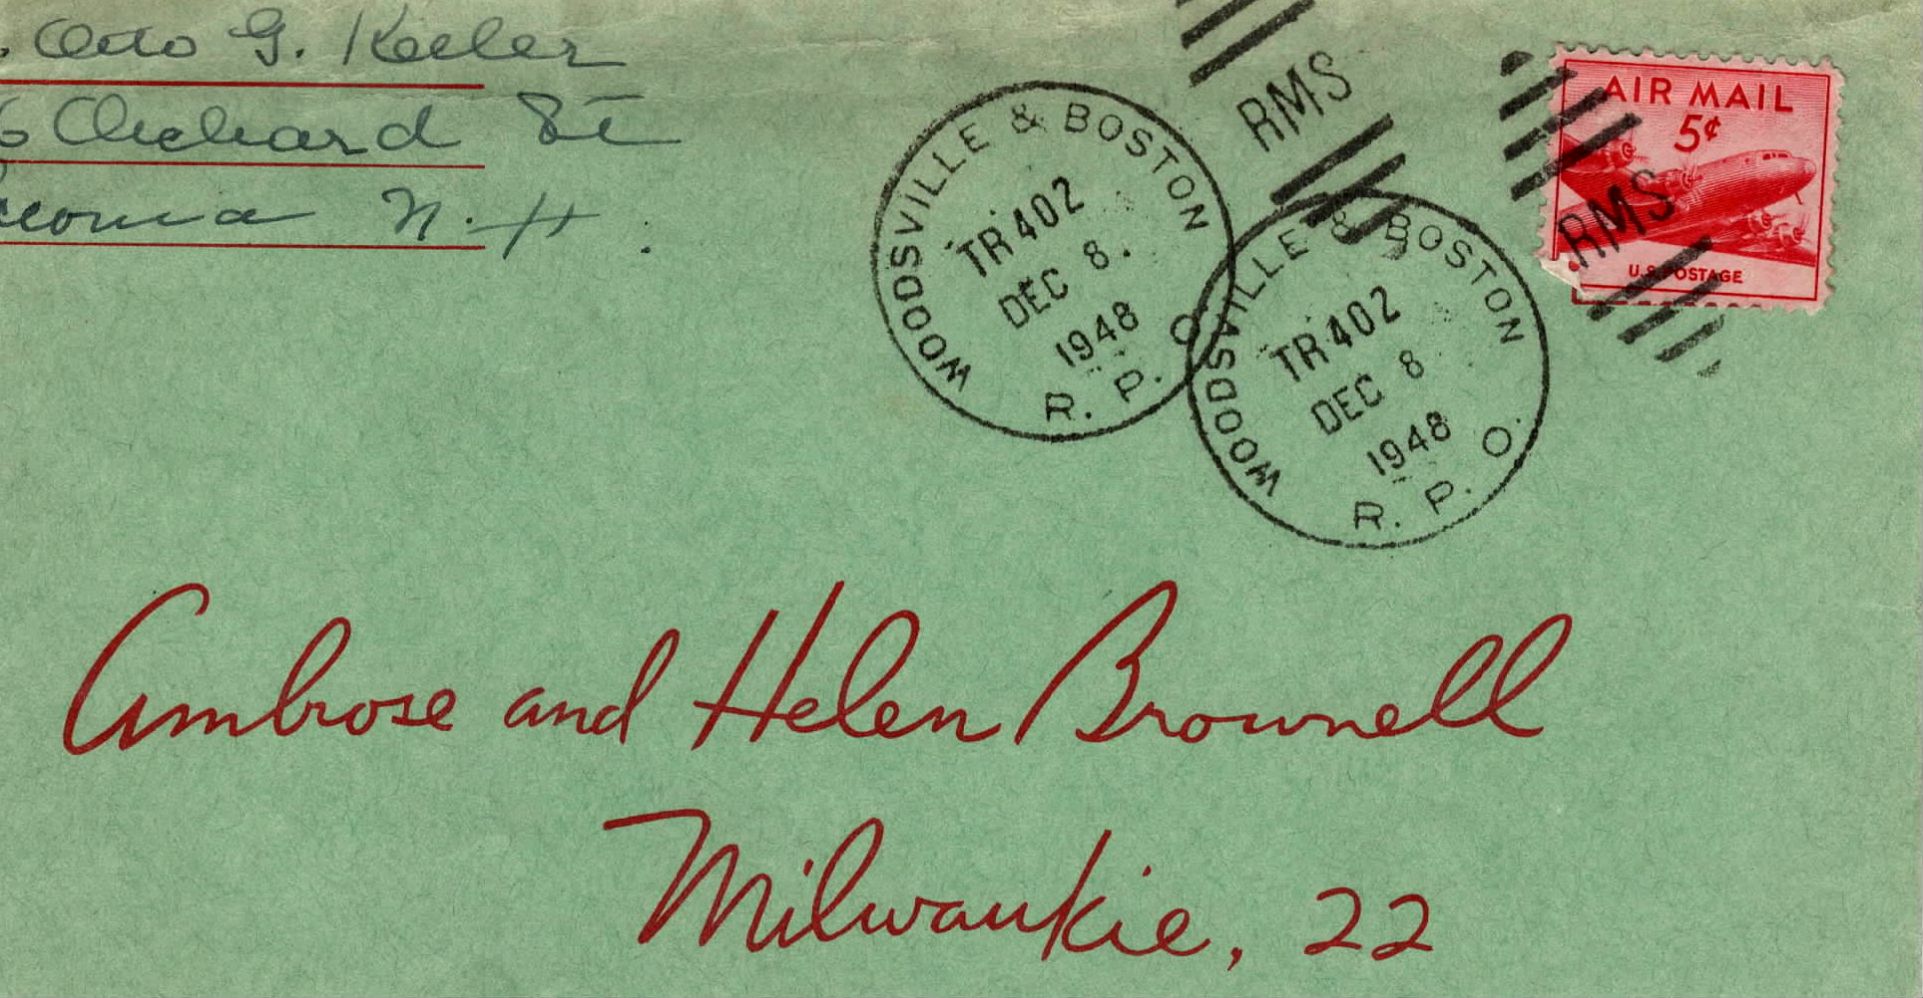 . Otto G. Keeler
6 Orchard St
N.H.
WOODSVILLE & BOSTON
TR 402
DEC 8.
1948
R. P. O.
RMS
WOODSVILLE & BOSTON
TR 402
DEC 8
1948
R. P. O.
RMS
AIR MAIL
5¢
U.S. POSTAGE
Ambrose and Helen Brownell
Milwaukie, 22